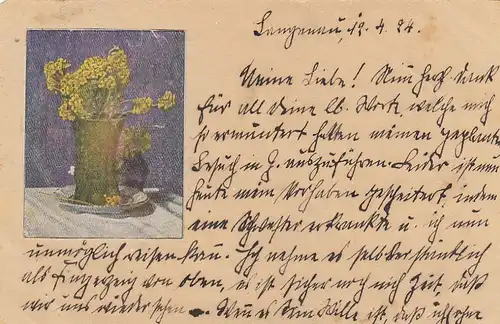 Langenau, 12. 4. 24.
Meine Liebe! Nun herzl. Dank
für all deine lb. Worte, welche mich
so ermuntert hatten meinen geplanten
Besuch in Z. auszuführen. Leider ist nun
heute mein Vorhaben gescheitert, indem
eine Schwester erkrankte u. ich nun
unmöglich reisen kann. Ich nehme es selbstverständlich
als Fingerzeig von oben, es ist sicher noch nicht Zeit, daß
wir uns wieder sehen. Wenn es Sein Wille ist, daß ich ohne